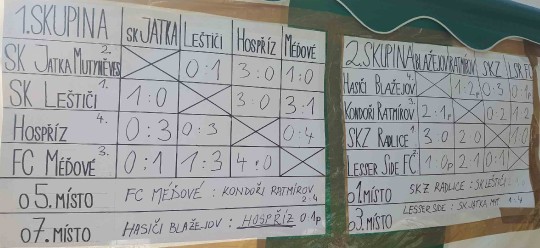 1. SKUPINA SK JATKA LEŠTIČI HOSPŘÍZ MÉĎOVÉ
SK JATKA MUTYNĚVES 2. 0:1 3:0 1:0
SK LEŠTIČI 1. 1:0 3:0 3:1
HOSPŘÍZ 4. 0:3 0:3 0:4
FC MÉĎOVÉ 3. 0:1 1:3 4:0
o 5. MÍSTO FC MÉĎOVÉ : KONDOŘI RATMÍROV 2:4
o 7. MÍSTO HASIČI BLAŽEJOV : HOSPŘÍZ 0:1p
2. SKUPINA BLAŽEJOV RATMÍROV SKZ
HASIČI BLAŽEJOV 4. 1:2p 0:3 0:1p
KONDOŘI RATMÍROV 2:1p 0:2 1:2
SKZ RADLICE 1. 3:0 2:0 1:0
LESSER SIDE FC 1:0p 2:1 0:1
o 1. MÍSTO SKZ RADLICE : SK LEŠTIČI
o 3. MÍSTO LESSER SIDE : SK JATKA 1:4